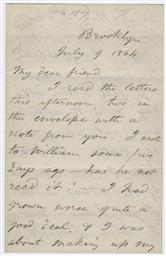 Brooklyn
July 9 1864
My dear friend
I read the letters
this afternoon, two in
the envelope with a
note from you. I wrote
to William some five
days ago - has he not
read it? I had
grown worse, quite a
good deal, & I was
about making up my